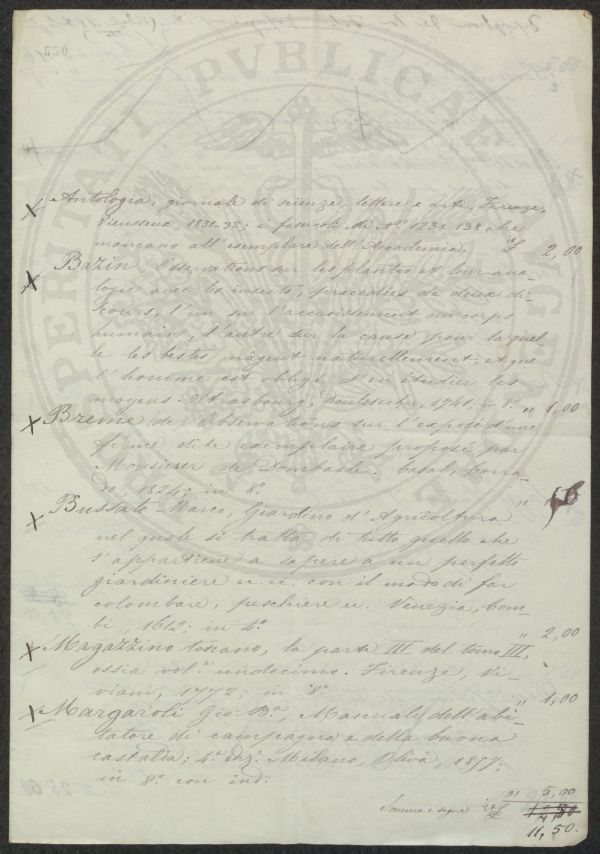 220
PROSPERITATI PVBLICAE AVGENDAE
X Antologia, giornale di scienze, lettere e arti. Firenze,
Vieusseux, 1831-32; i fascicoli di N.º 123 e 138 che
mancano all'esemplare dell'Accademia. 2,00
X Bazin, Observations sur les plantes et leur ana-
logie avec les insects, precedées de deux di-
scours, l'un sur l'accroissement du corps
humain, l'autre sur la cause pour laquel
le les bestes nagent naturellement; et que
l'homme est obligé d'en étudier les
moyens. Strasbourg, Doulssecker, 1741; in 8º " 1,00
X Breme (de) Observations sur l'exposé d'une
ferme dite exemplaire proposé par
Monsieur de Dombasle. Casal, Corra-
do, 1824; in 8º. "
X Bussato Marco, Giardino d'Agricoltura
nel quale si tratta di tutto quello che
s'appartiene a sapere a un perfetto
giardiniere ec. ec. con il modo di far
colombare, peschiere ec. Venezia, Com-
bi, 1612; in 4º. " 2,00
X Magazzino toscano, la parte III del tomo III,
ossia vol.º undecimo. Firenze, Vi-
viani, 1772; in 8º. " 1,00
X Margaroli Gio. B.ª, Manuale dell'abi-
tatore di campagna e della buona
castalda; 4ª ediz. Milano, Oliva, 1857;
in 8º con ind: " 5,00
Somma e segue
11,50.